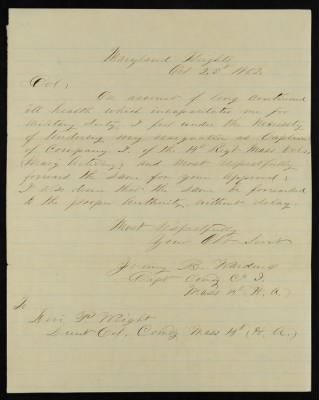 Maryland Heights
Oct 25" 1862
Col;
On account of long continued
ill health which incapacitates me for
military duty, I feel under the necessity
of tendering my resignation as Captain
of Company I. of the 14" Regt Mass Vols.
Heavy Artillery; and most respectfully
forward the same for your approval;
I also desire that the same be forwarded
to the proper authority without delay.
Most respectfully
Your Obt Servt
B.
Capt Comdg Co I.
Mass 14" H. A.
To
Wright
Lieut Col. Comdg Mass 14" (H. A.)